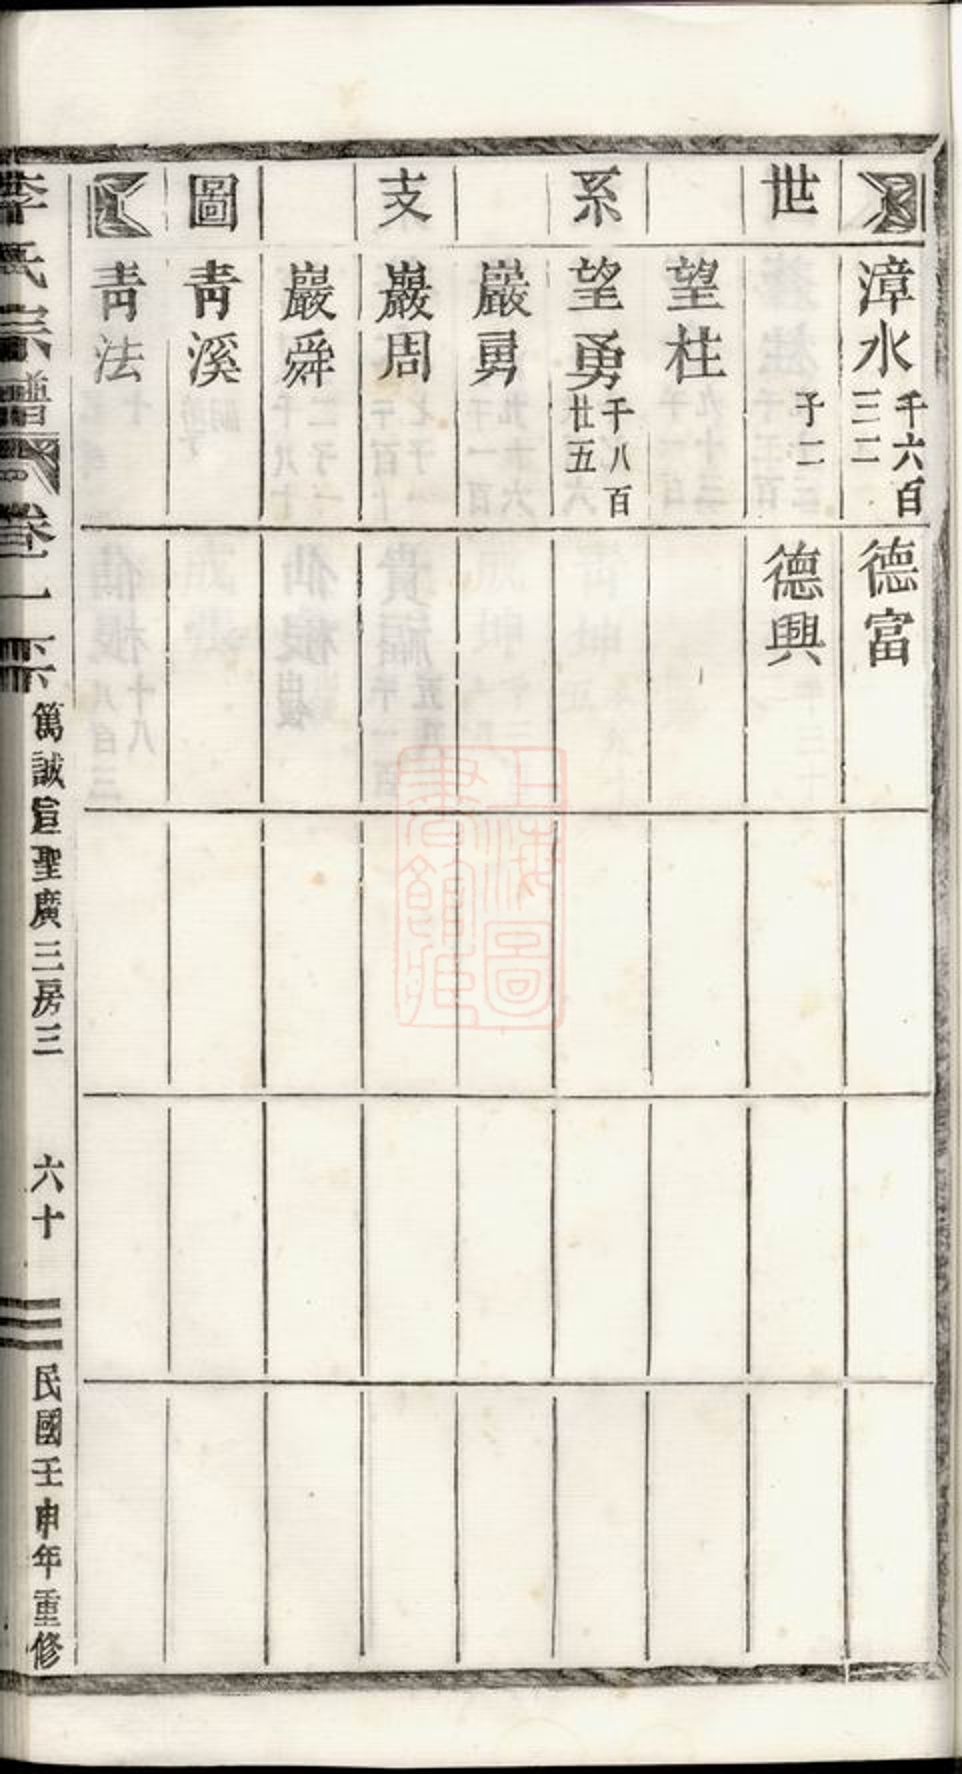 世系支圖
漳水 千六百三二
子二
望柱
望勇 千八百廿五
巖勇
巖周
巖舜
青溪
青法
德富
德興
李氏宗譜 卷一 篤誠宣聖廣三房三 六十 民國壬申年重修
上海圖書館藏